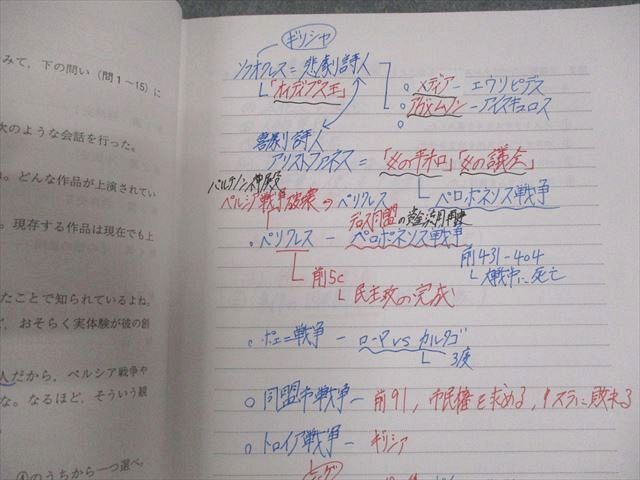 みて，下の問い（問1～15）に
次のような会話を行った。
。どんな作品が上演されてい
。現存する作品は現在でも上
たことで知られているよね。
おそらく実体験が彼の創
人だから，ペルシア戦争や
な。なるほど，そういう観
④のうちから一つ選べ。
ギリシャ
ソフォクレス＝悲劇詩人
「オイディプス王」
○ メディアーエウリピデス
○ アガメムノンーアイスキュロス
○
喜劇詩人
アリストファネス＝「女の平和」「女の議会」
パルテノン神殿
ペルシア戦争破壊→ペリクレス
ペロポネソス戦争
デロス同盟の資金流用
。ペリクレス ー ペロポネソス戦争
前431-404
大戦中に死亡
前5c
民主政の完成
。ポエニ戦争 ー ローマ vs カルタゴ
3度
○ 同盟市戦争ー前91，市民権を求める，スラに敗れる
○ トロイア戦争ー ギリシア